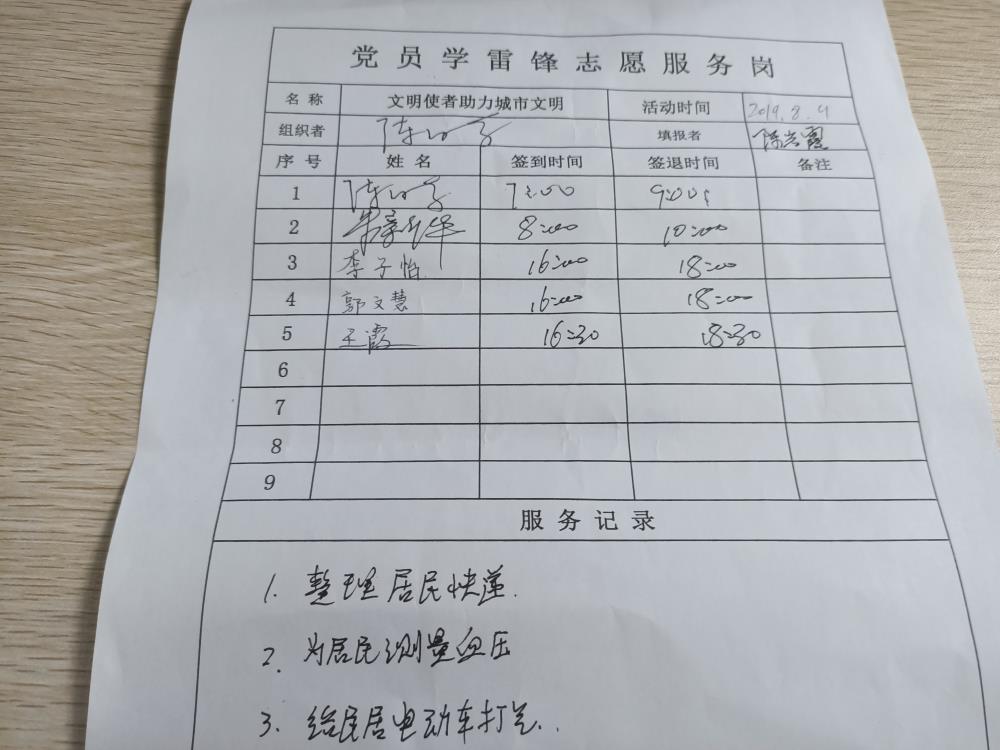 党员学雷锋志愿服务岗
名称 文明使者助力城市文明 活动时间 2019.8.4
组织者 填报者
序号 姓名 签到时间 签退时间 备注
1 7:00 9:00
2 8:00 10:00
3 李子怡 16:00 18:00
4 郭文慧 16:00 18:00
5 王霞 16:30 18:30
6
7
8
9
服务记录
1. 整理居民快递.
2. 为居民测量血压
3. 给民居电动车打气..